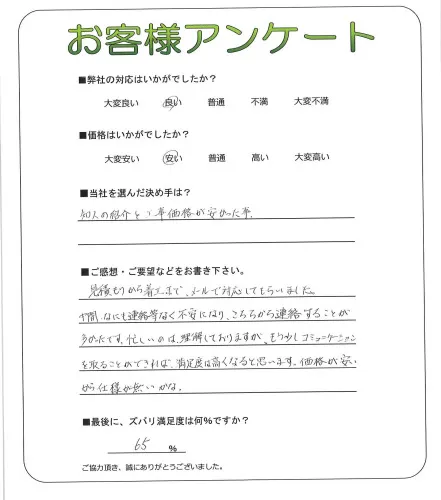 お客様アンケート
■弊社の対応はいかがでしたか?
大変良い 良い 普通 不満 大変不満
■価格はいかがでしたか?
大変安い 安い 普通 高い 大変高い
■当社を選んだ決め手は?
知人の紹介と、価格が安かった事。
■ご感想・ご要望などをお書き下さい。
見積もりから着工まで、メールで対応してもらいました。
中間、なにも連絡等なく不安になり、こちらから連絡することが
多かったです。忙しいのは、理解しておりますが、もう少しコミュニケーション
を取ることができれば、満足度は高くなると思います。価格が安い
から仕様が無いかな。
■最後に、ズバリ満足度は何%ですか?
65 %
ご協力頂き、誠にありがとうございました。